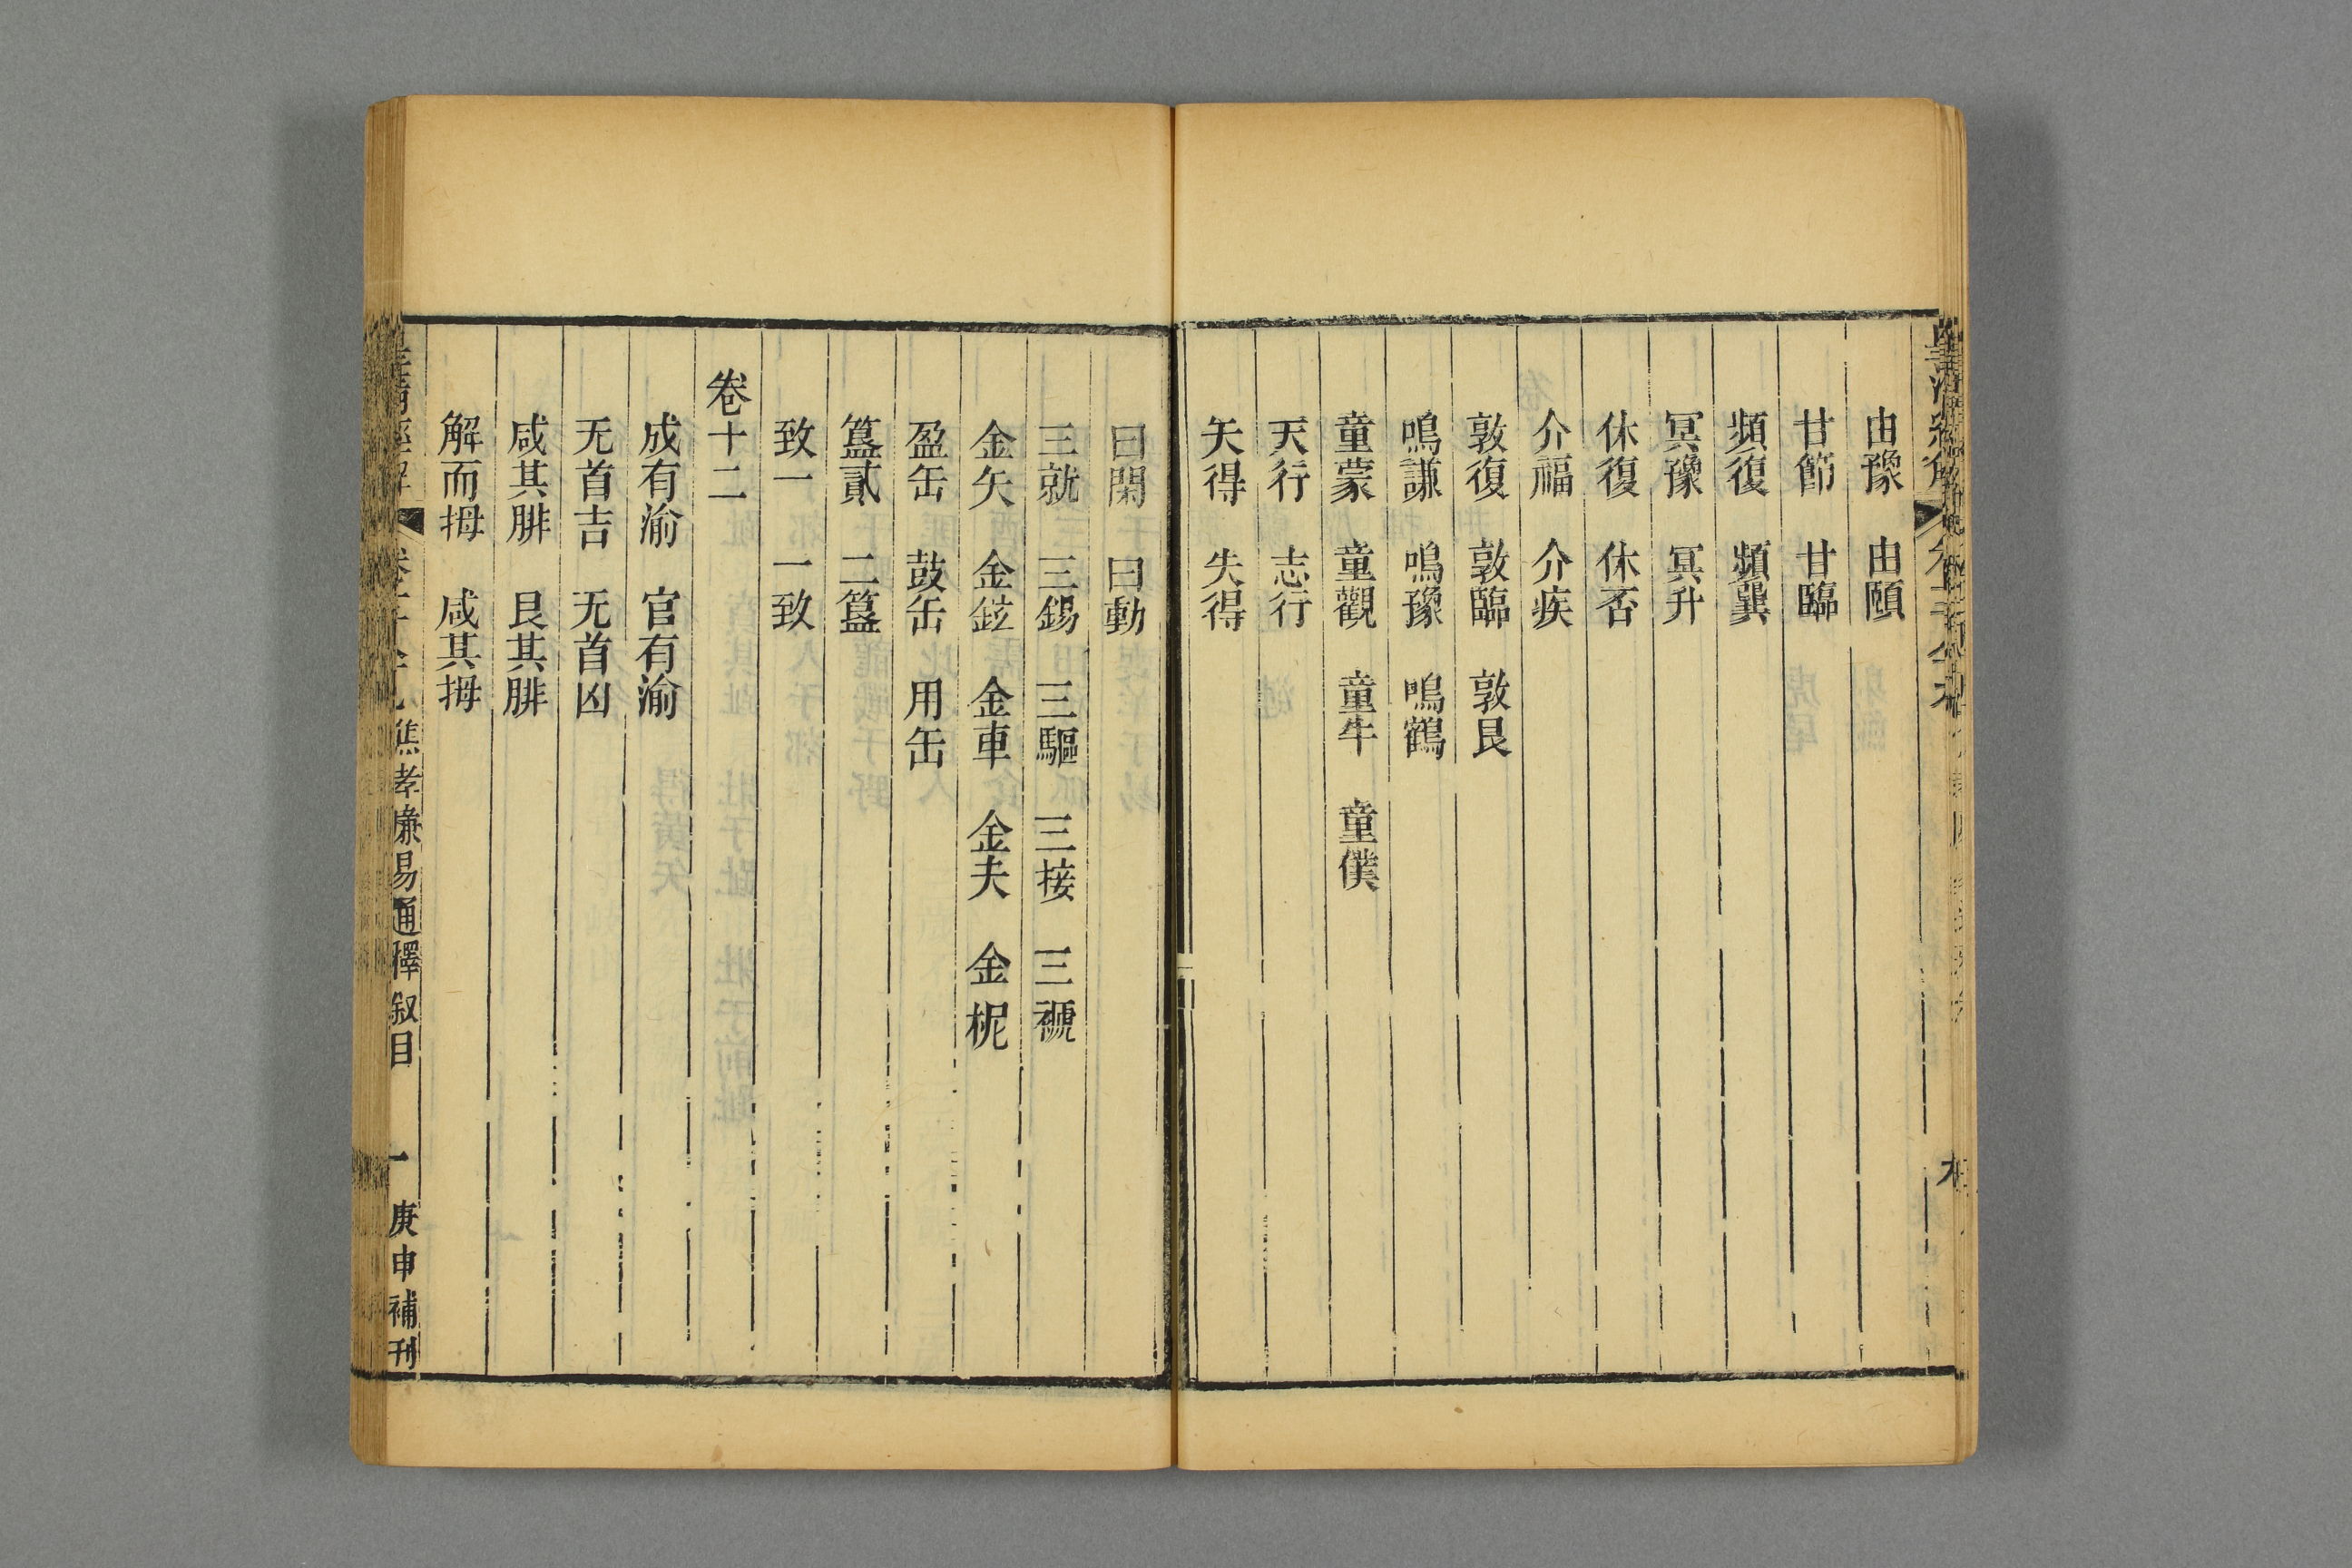 由豫　由頤
甘節　甘臨
頻復　頻巽
冥豫　冥升
休復　休否
介福　介疾
敦復　敦臨　敦艮
鳴謙　鳴豫　鳴鶴
童蒙　童觀　童牛　童僕
天行　志行
矢得　失得
曰閑　曰動
三就　三錫　三驅　三接　三褫
金矢　金鉉　金車　金夫　金柅
盈缶　鼓缶　用缶
簋貳　二簋
致一　一致
卷十二
成有渝　官有渝
无首吉　无首凶
咸其腓　艮其腓
解而拇　咸其拇
焦孝廉易通釋敘目　一　庚申補刊